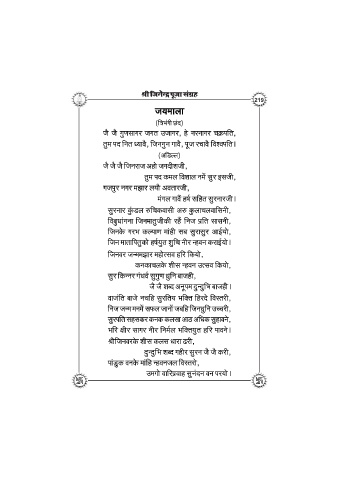 श्री जिनेन्द्र पूजा संग्रह
219
जयमाला
(त्रिभंगी छंद)
जै जै गुणसागर जगत उजागर, हे नरनागर चक्रपति,
तुम पद नित ध्यावै, जिनगुन गावें, पूज रचावै विश्वपति।
(अडिल्ल)
जै जै जै जिनराज अहो जगदीशजी,
तुम पद कमल विशाल नमें सुर इसजी,
गजपुर नगर मझार लयौ अवतारजी,
मंगल गावें हर्ष सहित सुरनारजी।
सुरनार कुंडल रुचिकवासी अरु कुलाचलवासिनी,
विबुधांगना जिनमातुजीकी रहैं निज प्रति सासनी,
जिनके गरभ कल्याण मांही सब सुरासुर आईयो,
जिन मातापितुको हर्षयुत शुचि नीर न्हवन कराईयो।
जिनवर जन्ममझार महोत्सव हरि कियो,
कनकाचलके शीस न्हवन उत्सव कियो,
सुर किन्नर गंधर्व सुगुण धुनि बाजही,
जै जै शब्द अनूपम दुन्दुभि बाजही।
वाजंति बाजे नचहि सुरतिय भक्ति हिरदे विस्तरी,
निज जन्म मनमें सफल जानों जबहि जिनधुनि उच्चरी,
सुरपति सहसकर कनक कलसा आठ अधिक सुहावने,
भरि क्षीर सागर नीर निर्मल भक्तियुत हरि पावने।
श्रीजिनवरके शीस कलस धारा ढरी,
दुन्दुभि शब्द गहीर सुरन जै जै करी,
पांडुक वनके मांहि न्हवनजल विस्तरो,
उमगो वारिप्रवाह सुनंदन वन परयो।